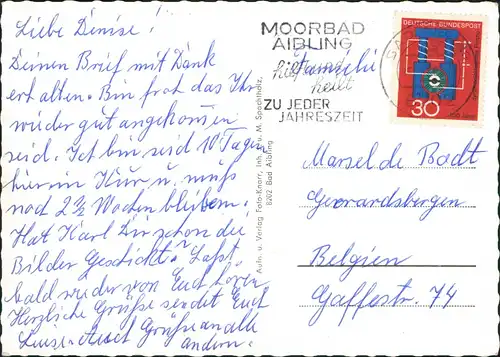 Liebe Denise!
Deinen Brief mit Dank
erhalten. Bin froh das Ihr
wieder gut angekommen
seid. Ich bin seid 10 Tagen
hier in Kur u. muß
noch 2 ½ Wochen bleiben.
Hat Karl Dir schon die
Bilder Geschickt? Laßt
bald wieder von Euch hören.
Herzliche Grüße sendet Euch
Grüße an alle
andern.
Aufn. u. Verlag Foto-Knarr, Inh. M. Spachtholz,
8202 Bad Aibling
MOORBAD
AIBLING
hilft und
heilt
ZU JEDER
JAHRESZEIT
DEUTSCHE BUNDESPOST
30
Familie
Marsel de Badt
Gerrardsbergen
Belgien
Gaffestr. 74